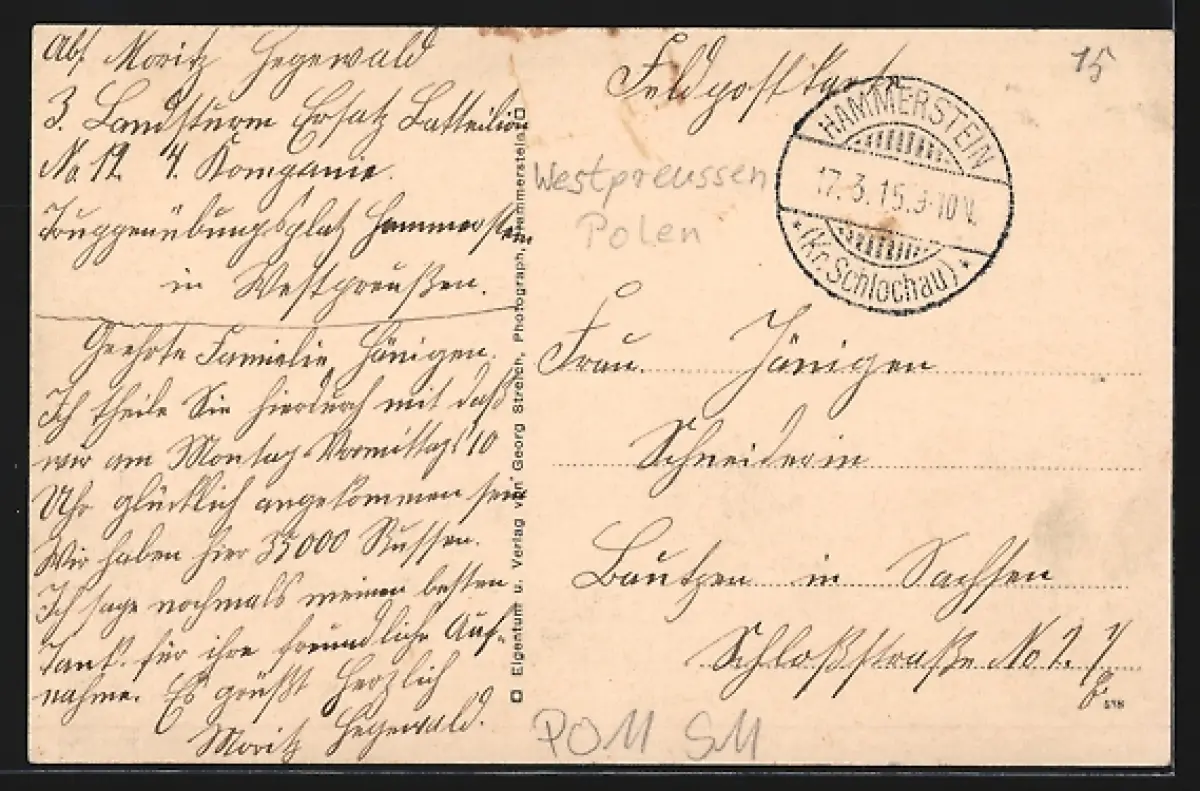 Abs. Moritz Hegewald
3. Landsturm Ersatz Batteilion
No. 12. 4. Kompanie.
Truppenübungsplatz Hammerstein
in Westpreußen.
Geehrte Familie Jänigen.
Ich theile Sie hierdurch mit daß
wir am Montag Vormittags 10
Uhr glücklich angekommen sein
Wir haben hier 35000 Russen.
Ich sage nochmals meinen besten
Dank für ihre freundliche Auf-
nahme. Es grüßt Herzlich
Moritz Hegewald.
Eigentum u. Verlag von Georg Streich, Photograph, Hammerstein.
Feldpostkarte
15
HAMMERSTEIN
17.3.15.9-10V.
(Kr. Schlochau)
Westpreussen
Polen
Frau Jänigen
Schneiderin
Bautzen in Sachsen
Schloßstraße No
POM SM